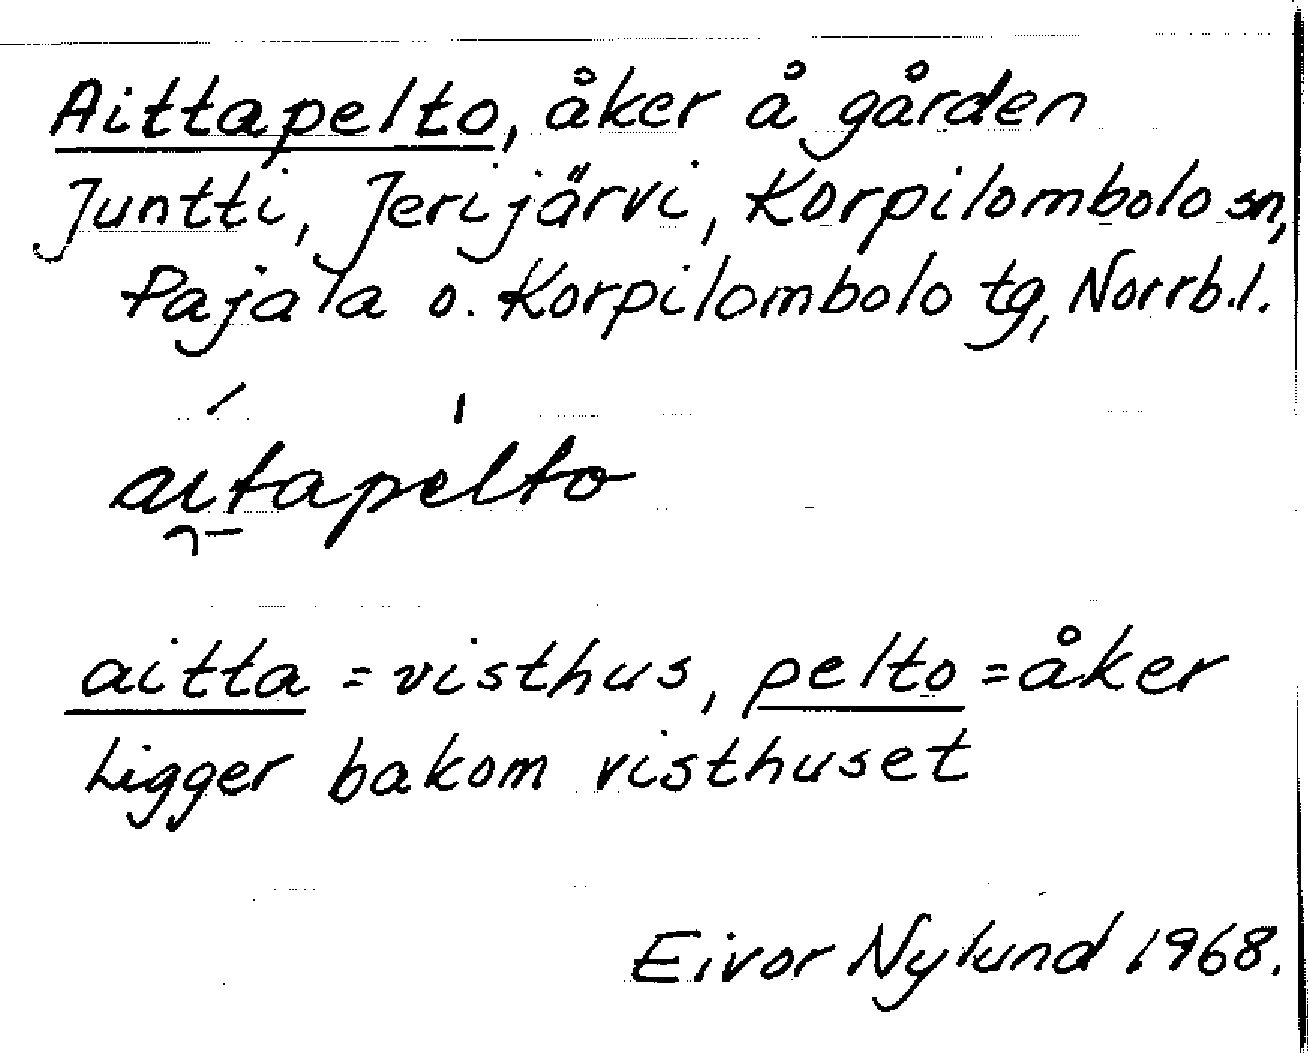 Aittapelto, åker å gården
Juntti, Jerijärvi, Korpilombolo sn,
Pajala o. Korpilombolo tg, Norrb.l.
aitapelto
aitta = visthus, pelto = åker
Ligger bakom visthuset
Eivor Nylund 1968.